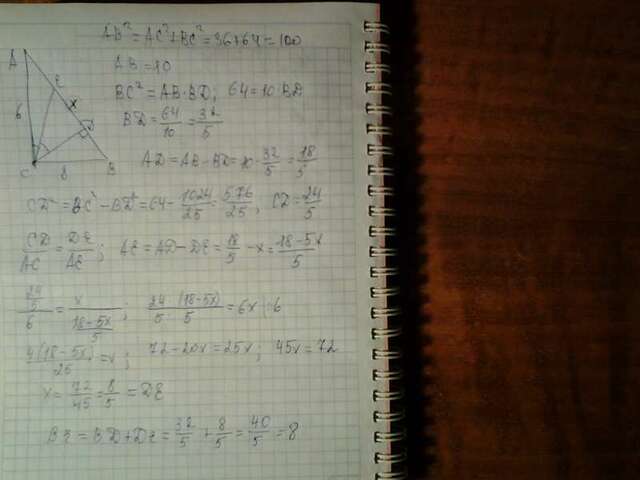 AB² = AC² + BC² = 36 + 64 = 100
AB = 10
BC² = AB · BD; 64 = 10 BD
BD = 64/10 = 32/5
AD = AB - BD = 10 - 32/5 = 18/5
A
E
x
D
6
C
8
B
CD² = BC² - BD² = 64 - 1024/25 = 576/25; CD = 24/5
CD/AC = DE/AE; AE = AD - DE = 18/5 - x = (18-5x)/5
(24/5)/6 = x/((18-5x)/5); 24/5 · (18-5x)/5 = 6x |:6
4(18-5x)/25 = x; 72-20x = 25x; 45x = 72
x = 72/45 = 8/5 = DE
BE = BD + DE = 32/5 + 8/5 = 40/5 = 8